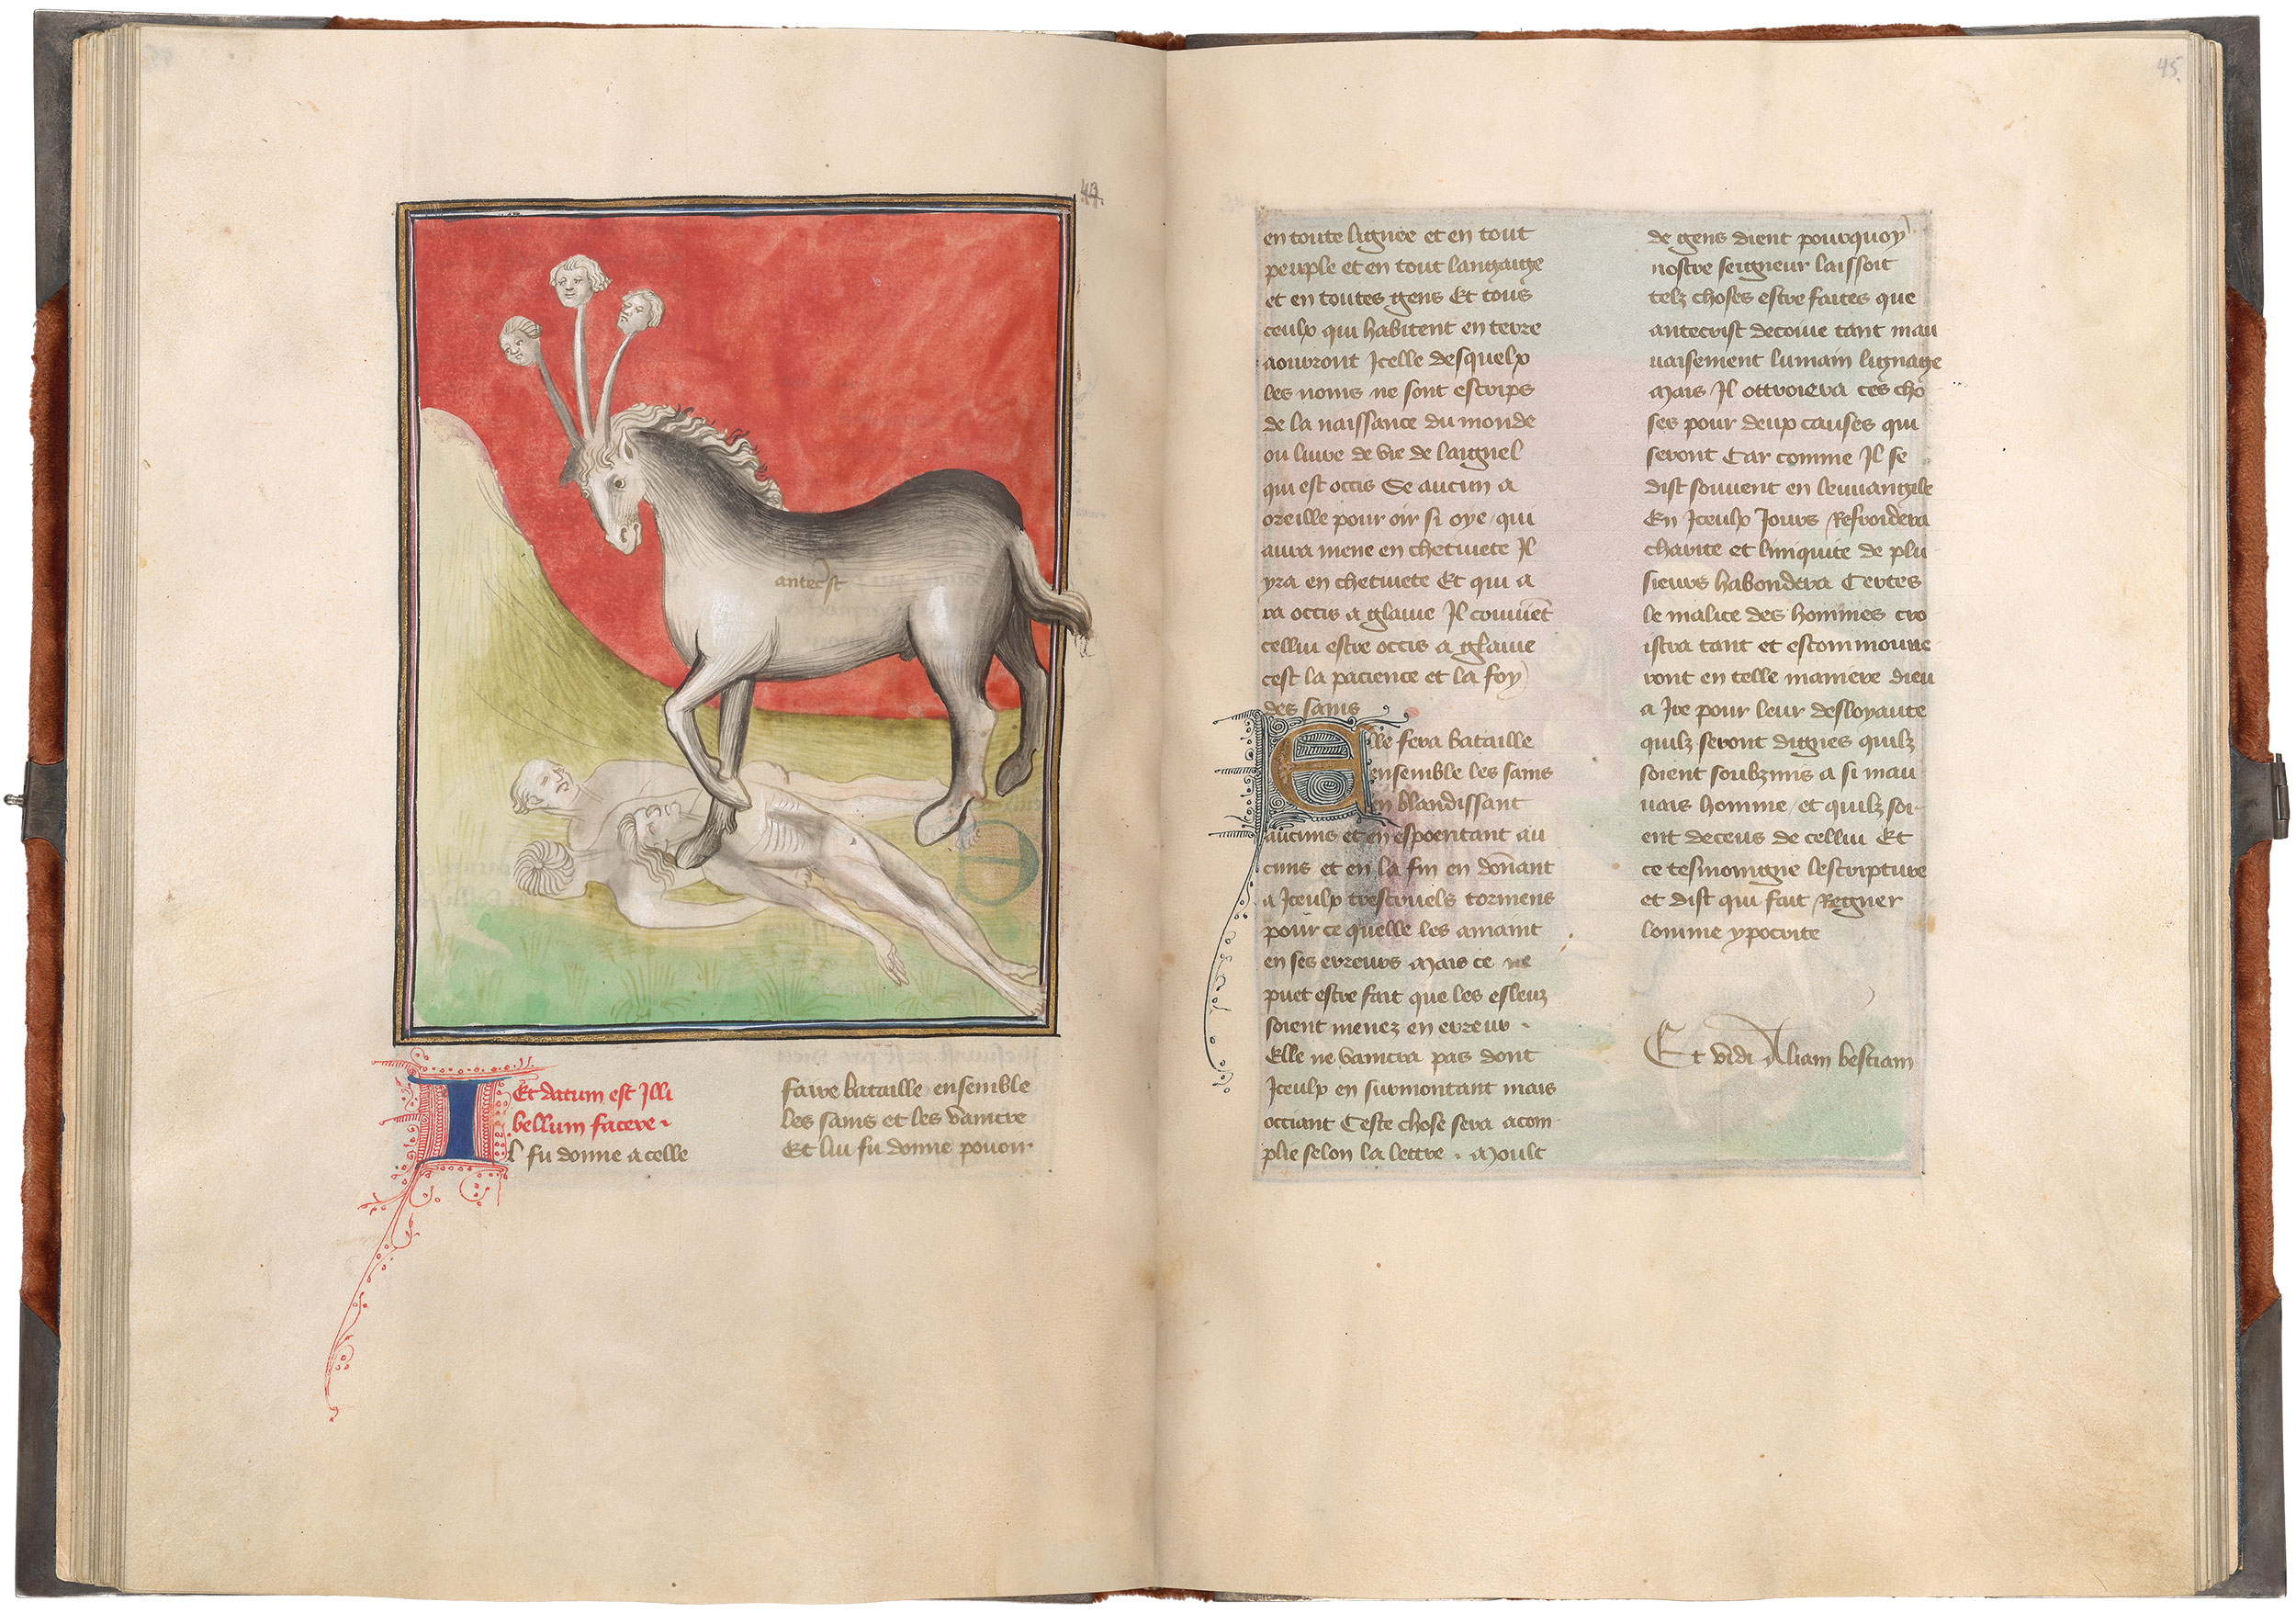 44.
antecrst
Et datum est Illi
bellum facere.
Il fu donne a celle
faire bataille ensemble
les sains et les vaincre
Et lui fu donne pouoir
45.
en toute lignee et en tout
peuple et en tout langaige
et en toutes gens Et tous
ceulx qui habitent en terre
aouront Icelle desquelx
les noms ne sont escrips
de la naissance du monde
ou liure de vie de laignel
qui est occis Se aucun a
oreille pour oir si oye qui
aura mene en chetiuete Il
yra en chetiuete Et qui a
ra occis a glaiue Il couuiet
cellui estre occis a glaiue
cest la pacience et la foy
des sains
Elle fera bataille
ensemble les sains
en blandissant
aucuns et en espoentant au
cuns et en la fin en donant
a Iceulx trescruels tormens
pour ce quelle les amaint
en ses erreurs Mais ce ne
puet estre fait que les esleuz
soient menez en erreur.
Elle ne vaincra pas dont
Iceulx en surmontant mais
occiant Ceste chose sera acom
plie selon la lettre. Moult
de gens dient pourquoy
nostre seigneur laissoit
telz choses estre faites que
antecrist decoiue tant mau
uaisement lumain lignage
Mais Il ottroiera ces cho
ses pour deux causes qui
seront Car comme Il se
dist souuent en leuuangile
En Iceulx Iours Refroidera
charite et liniquite de plu
sieurs habondera Certes
le malice des hommes cro
istra tant et escommouue
ront en telle maniere dieu
a Ire pour leur desloyaute
quilz seront dignes quilz
soient soubzmis a si mau
uais homme et quilz soi
ent deceus de cellui Et
ce tesmoingne lescripture
et dist qui fait Regner
lomme ypocrite
Et vidi Aliam bestiam